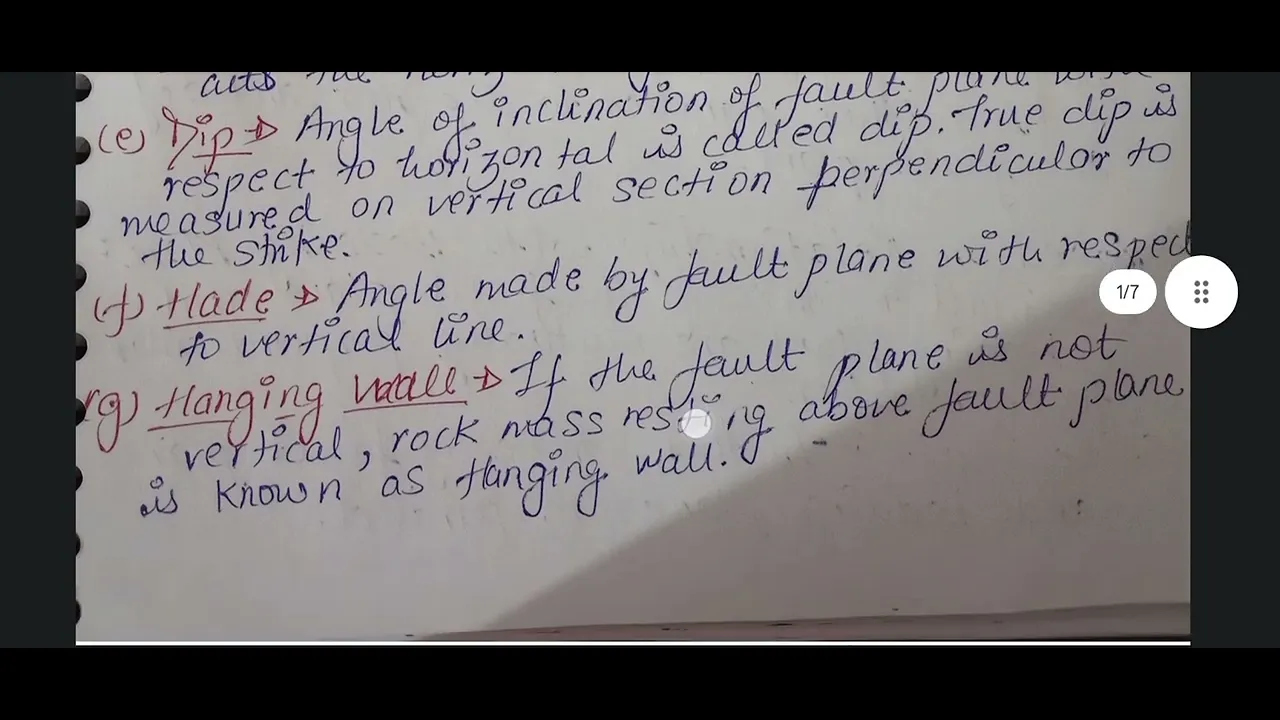 acts the
(e) Dip → Angle of inclination of fault plane with
respect to horizontal is called dip. True dip is
measured on vertical section perpendiculor to
the strike.
(f) Hade → Angle made by fault plane with respect
to vertical line.
(g) Hanging wall → If the fault plane is not
vertical, rock mass resting above fault plane
is known as Hanging wall.
1/7